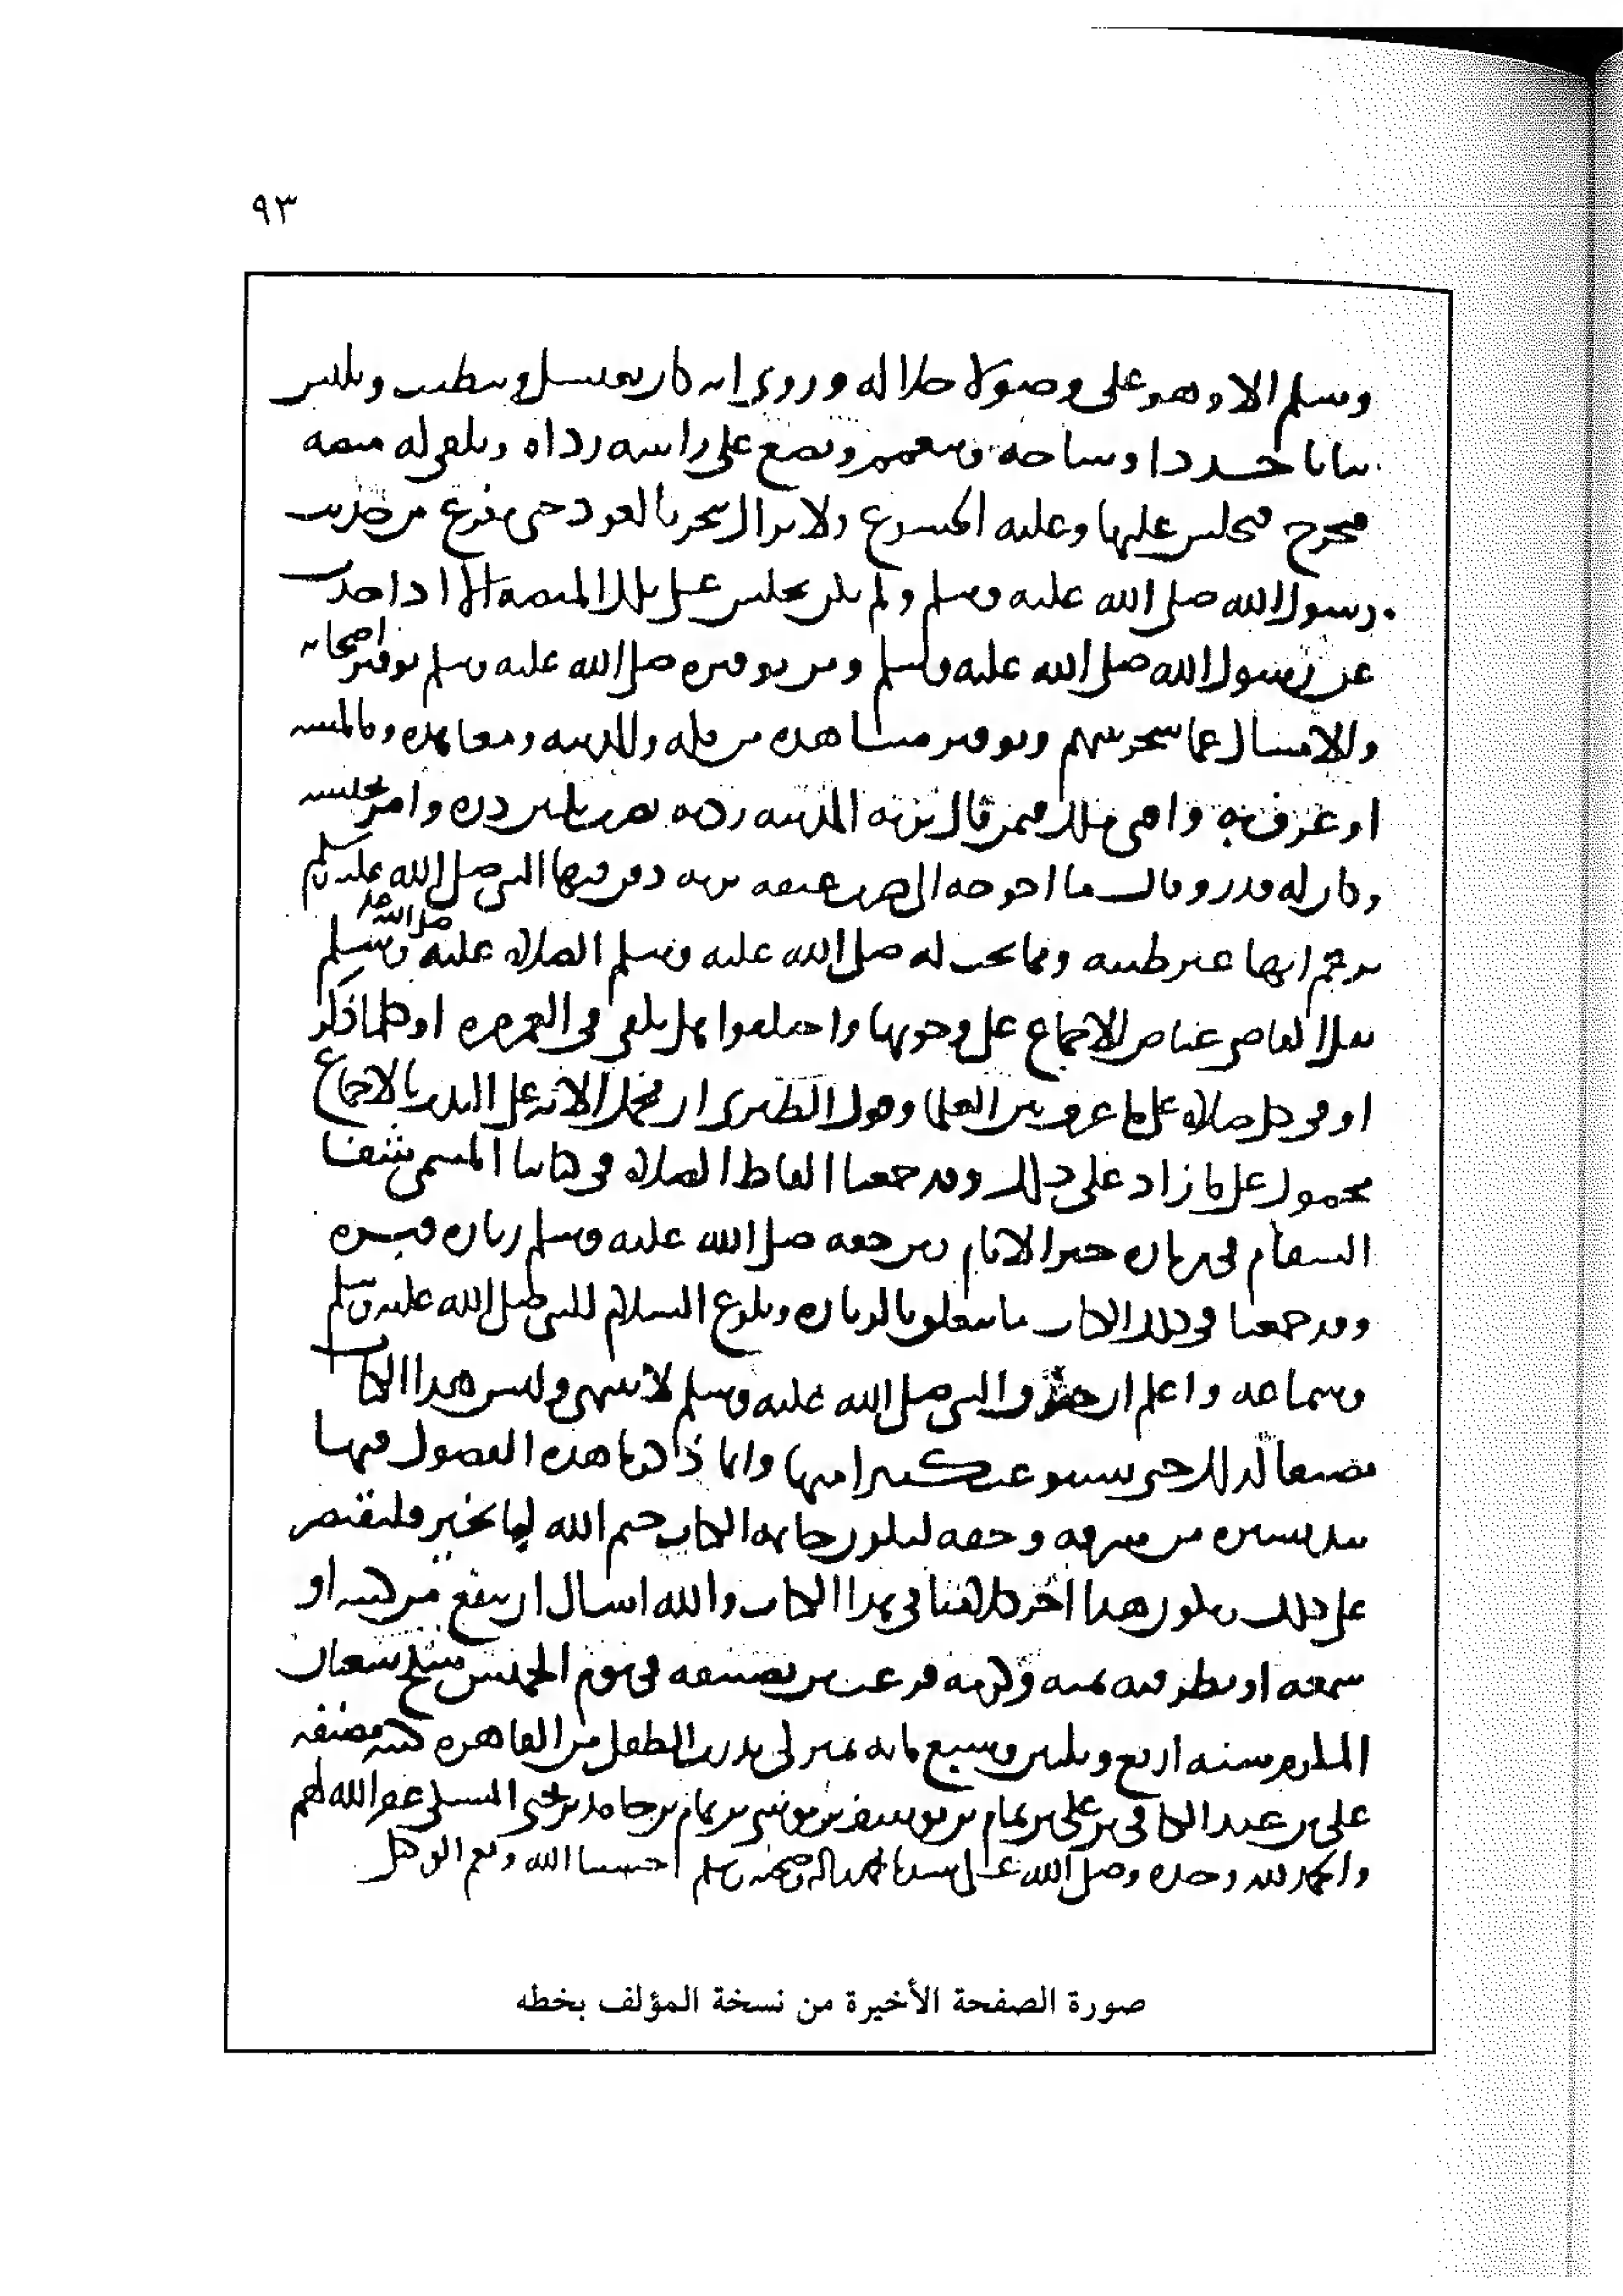 ٩٣
وسلم الا وهو على وضوء اجلالا له وروى انه كان يغتسل ويتطيب ويلبس
ثيابا جددا وساجه ويتعمم ويضع على راسه رداه ويلقى له منصه
فيخرج فيجلس عليها وعليه الخشوع ولا يزال يبخر بالعود حتى يفرغ من حديث
رسول الله صلى الله عليه وسلم ولم يكن يجلس على تلك المنصة الا اذا حدث
عن رسول الله صلى الله عليه وسلم ومن توقيره صلى الله عليه وسلم توقير اصحابه
والامساك عما شجر بينهم وتوقير مشاهده من مكه والمدينه ومعاهده وما لمسه
او عرف به وافتى ملك فيمن قال تربة المدينه رديه يضرب ثلثين دره وامر بحبسه
وكان له قدر وقال ما احوجه الى ضرب عنقه تربه دفن فيها النبي صلى الله عليه وسلم
يزعم انها غير طيبه ومما يجب له صلى الله عليه وسلم الصلاة عليه صلى الله عليه وسلم
نقل القاضي عياض الاجماع على وجوبها واختلفوا هل يكفي في العمر مره او كلما ذكر
او في كل صلاة على ما عرف بين العلما وقول الطبري ان محمل الاية على الندب بالاجماع
محمول على ما زاد على ذلك وقد جمعنا الفاظ الصلاة في كتابنا المسمى شفا
السقام في زيارة خير الانام ومن حقه صلى الله عليه وسلم زيارة قبره
وقد جمعنا في ذلك الكتاب ما يتعلق بالزيارة وبلوغ السلام للنبي صلى الله عليه وسلم
وسماعه واعلم ان حقوق النبي صلى الله عليه وسلم لا تنتهي وليس هذا الكتاب
مصنفا لذلك حتى نستوعب كثيرا منها وانما ذكرنا هذه الفصول فيها
نبذ يسيره من شرفه وحقه ليكون خاتمة الكتاب ختم الله لنا بخير فلنقتصر
على ذلك ويكون هذا اخر كلامنا في هذا الكتاب والله اسال ان ينفع من كتبه او
سمعه او نظر فيه بمنه وكرمه فرغت من تصنيفه في يوم الخميس سلخ شعبان
المكرم سنه اربع وثلثين وسبع مايه بمنزلي بدرب الطفل من القاهره كتبه مصنفه
علي بن عبد الكافي بن علي بن تمام بن يوسف بن موسى بن تمام بن حامد بن يحيى السبكي غفر الله لهم
والحمد لله وحده وصلى الله على سيدنا محمد واله وصحبه وسلم حسبنا الله ونعم الوكيل
صورة الصفحة الأخيرة من نسخة المؤلف بخطه